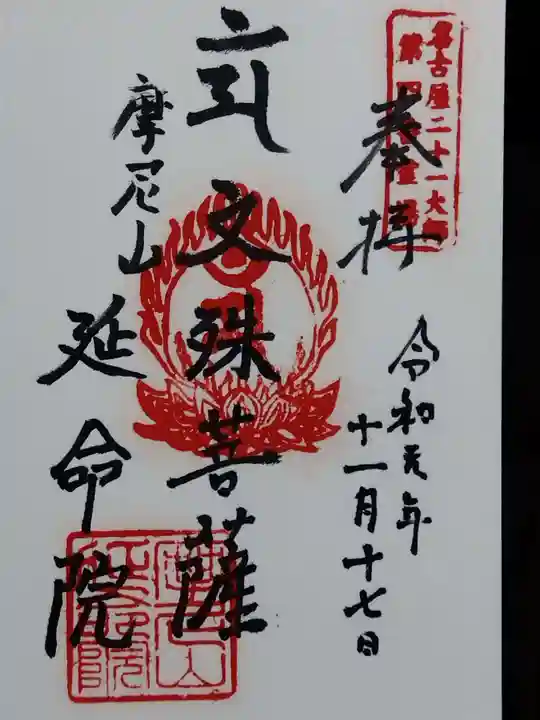 名古屋二十一大師
奉拝
令和元年
十一月十七日
文殊菩薩
摩尼山
延命院